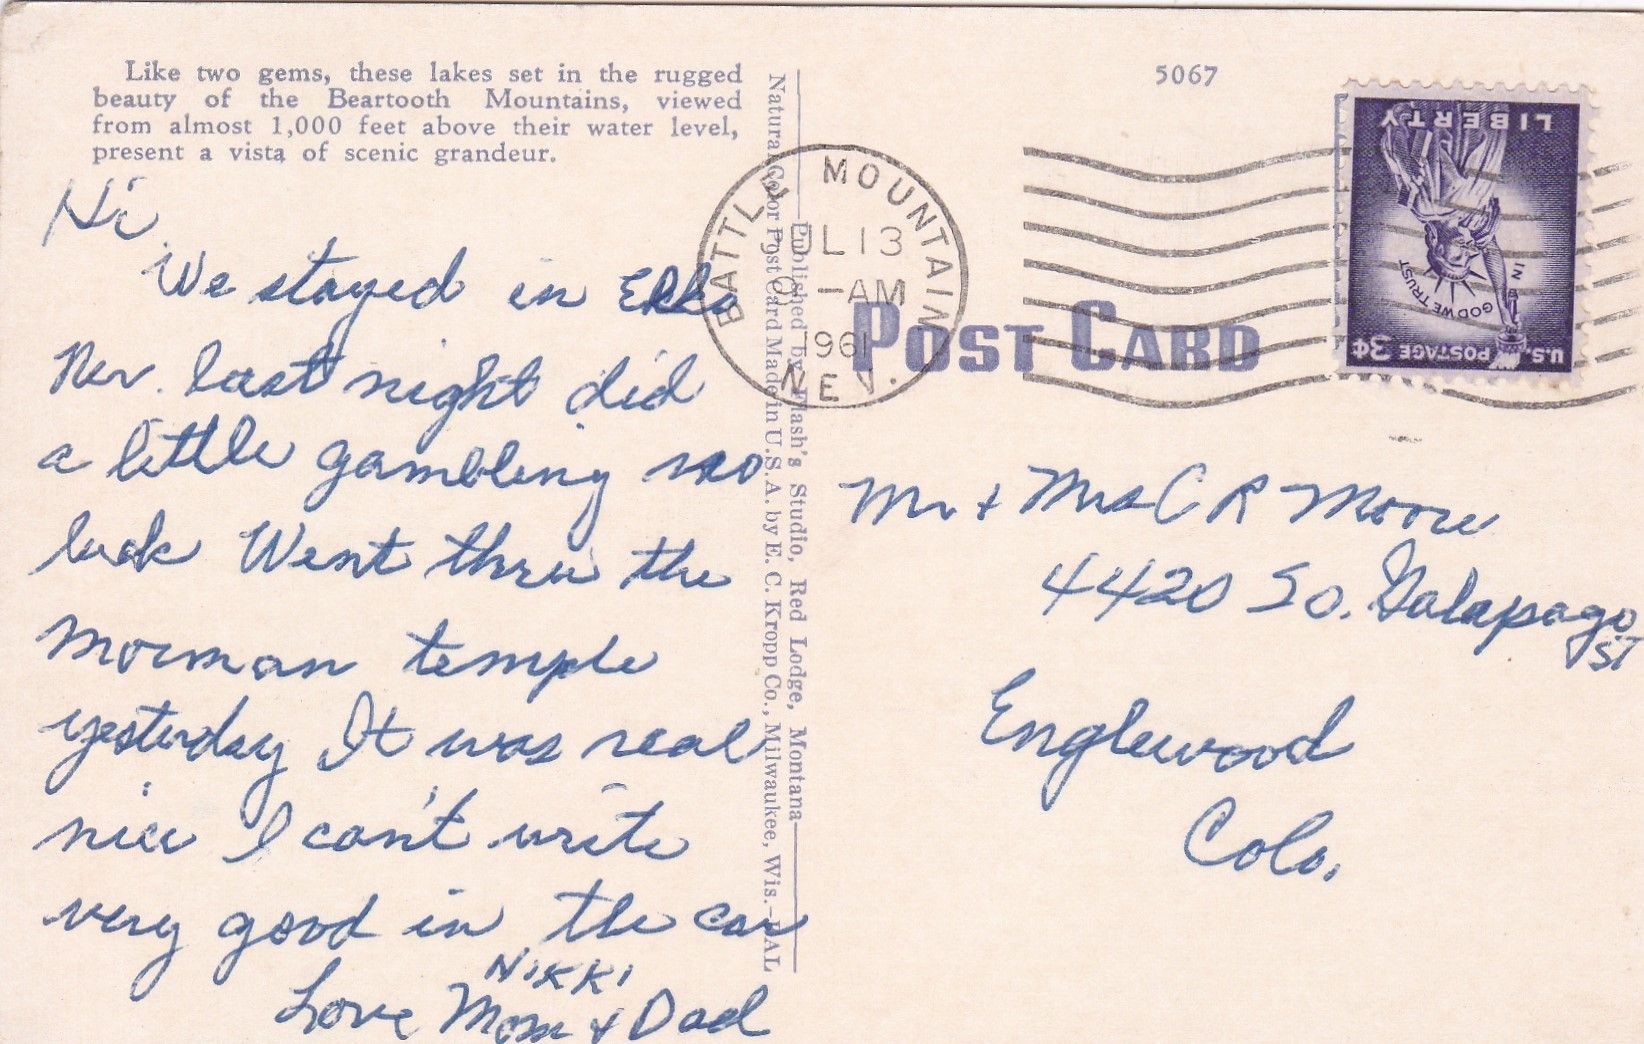 Like two gems, these lakes set in the rugged
beauty of the Beartooth Mountains, viewed
from almost 1,000 feet above their water level,
present a vista of scenic grandeur.
Hi
We stayed in Elko
Nev. last night did
a little gambling no
luck Went thru the
Morman temple
yesterday It was real
nice I can't write
very good in the car
Nikki
Love Mom & Dad
Published by Flash's Studio, Red Lodge, Montana
Natural Color Post Card Made in U.S.A. by E. C. Kropp Co., Milwaukee, Wis.
5067
BATTLE MOUNTAIN
JUL 13
AM
1961
NEV.
POST CARD
LIBERTY
IN GOD WE TRUST
U.S. POSTAGE 3¢
Mr + Mrs C R Moore
4420 So. Galapago
ST
Englewood
Colo.